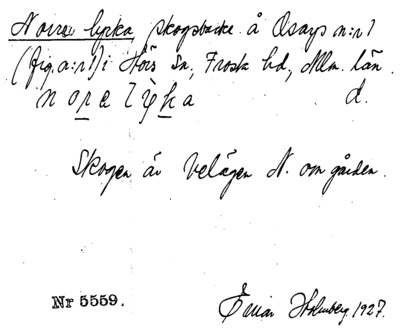 Norre lycka, skogsbacke å Osarp n:r 1
(fig. a:r 1) i Hörs sn, Frosta hd, Mlm. län.
norelyka d.
Skogen är belägen N. om gården.
Nr 5559. Einar Holmberg. 1927.